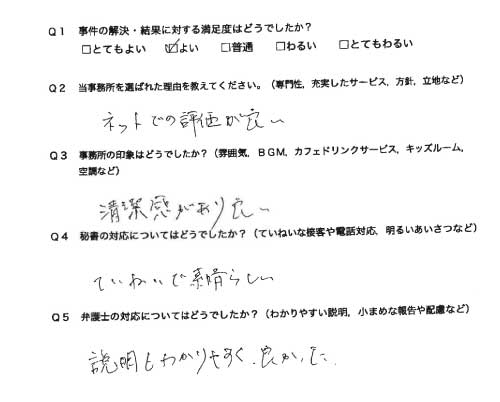 Q1 事件の解決・結果に対する満足度はどうでしたか?
□とてもよい ☑よい □普通 □わるい □とてもわるい
Q2 当事務所を選ばれた理由を教えてください。(専門性, 充実したサービス, 方針, 立地など)
ネットでの評価が良い
Q3 事務所の印象はどうでしたか?(雰囲気, BGM, カフェドリンクサービス, キッズルーム,
空調など)
清潔感があり良い
Q4 秘書の対応についてはどうでしたか?(ていねいな接客や電話対応, 明るいあいさつなど)
ていねいで素晴らしい
Q5 弁護士の対応についてはどうでしたか?(わかりやすい説明, 小まめな報告や配慮など)
説明もわかりやすく、良かった。